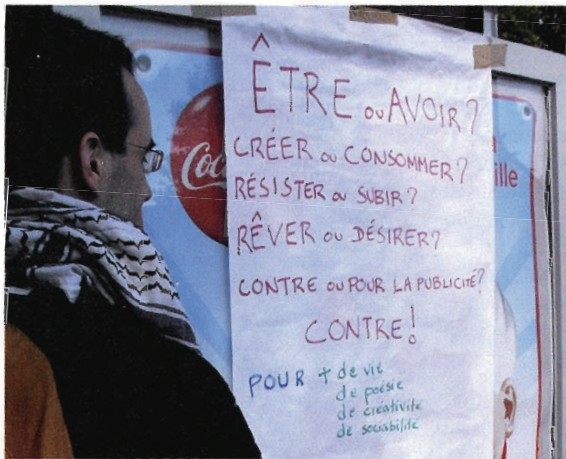 ÊTRE ou AVOIR?
CRÉER ou CONSOMMER?
RÉSISTER ou SUBIR?
RÊVER ou DÉSIRER?
CONTRE ou POUR LA PUBLICITÉ?
CONTRE!
POUR + de vie
de poésie
de créativité
de sociabilité
Coc
ille